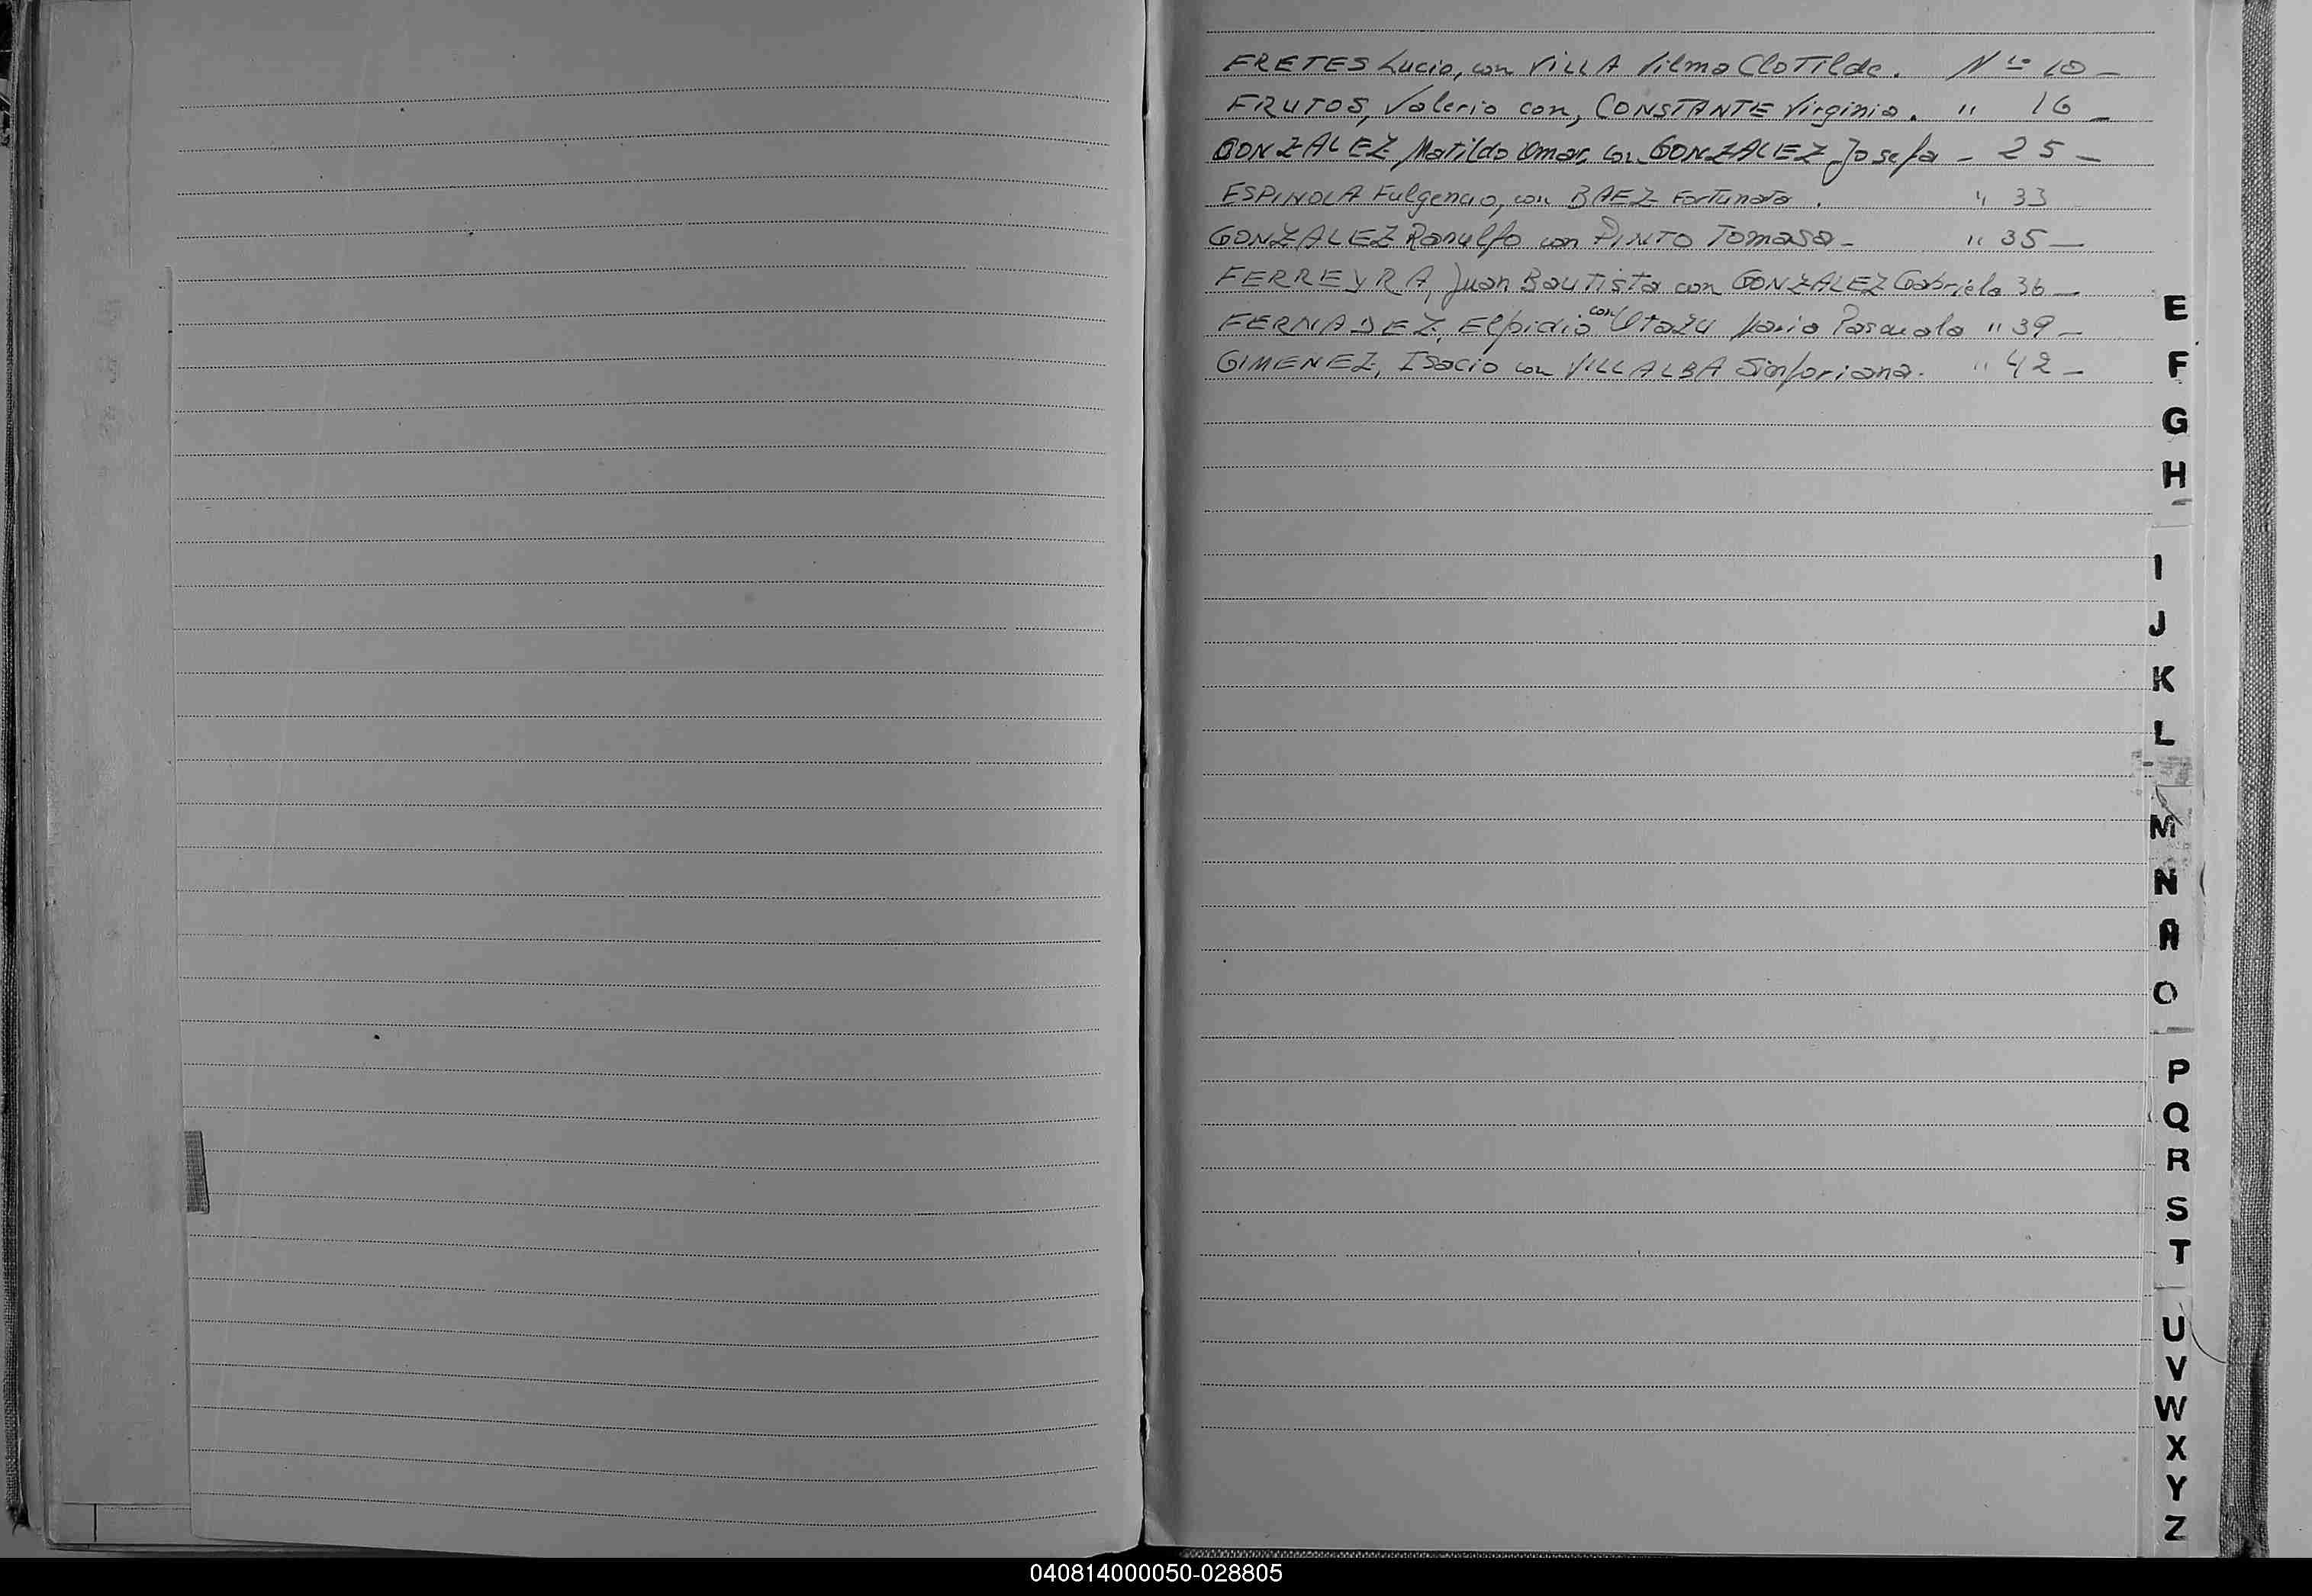 FRETES Lucio, con VILLA Vilma Clotilde. Nº 10 -
FRUTOS, Valerio con, CONSTANTE Virginia. " 16 -
GONZALEZ Matildo Omar, con GONZALEZ Josefa - 25 -
ESPINOLA Fulgencio, con BAEZ Fortunata . " 33
GONZALEZ Ranulfo con PINTO Tomasa - " 35 -
FERREYRA, Juan Bautista con GONZALEZ Gabriela 36 -
FERNADEZ, Elpidio con Otazu María Pascuala " 39 -
GIMENEZ, Isacio con VILLALBA Sinforiana. " 42 -
E
F
G
H
I
J
K
L
M
N
Ñ
O
P
Q
R
S
T
U
V
W
X
Y
Z
040814000050-028805